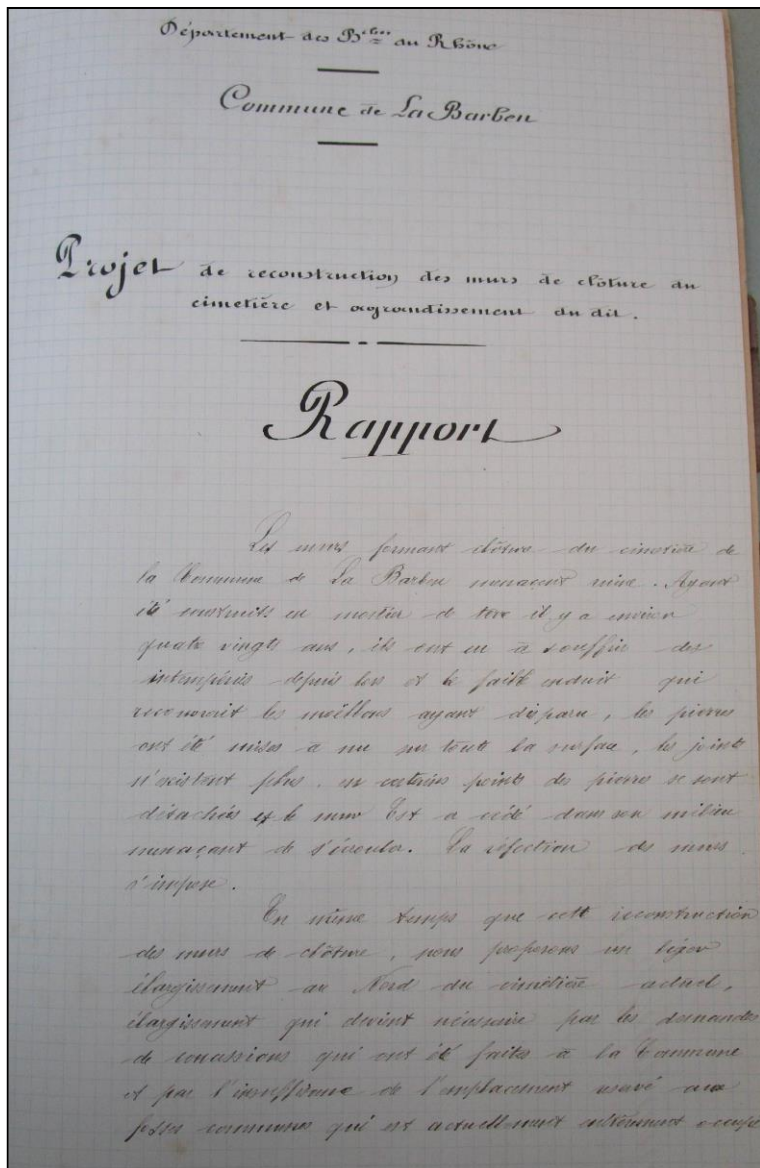 Département des B^ches du Rhône
Commune de La Barben
Projet de reconstruction des murs de clôture du
cimetière et agrandissement du dit.
Rapport
Les murs formant clôture du cimetière de
la Commune de La Barben menaçent ruine. Ayant
été construits en mortier de terre il y a environ
quatre vingts ans, ils ont eu à souffrir des
intempéries depuis lors et le faible enduit qui
recouvrait les moëllons ayant disparu, les pierres
ont été mises à nu sur toute la surface, les joints
n'existent plus, en certains points des pierres se sont
détachées et le mur Est a cédé dans son milieu
menaçant de s'écrouler. La réfection des murs
s'impose.
En même temps que cette reconstruction
des murs de clôture, nous proposons un léger
élargissement au Nord du cimetière actuel,
élargissement qui devient nécessaire par les demandes
de concessions qui ont été faites à la Commune
et par l'insuffisance de l'emplacement réservé aux
fosses communes qui est actuellement entièrement occupé